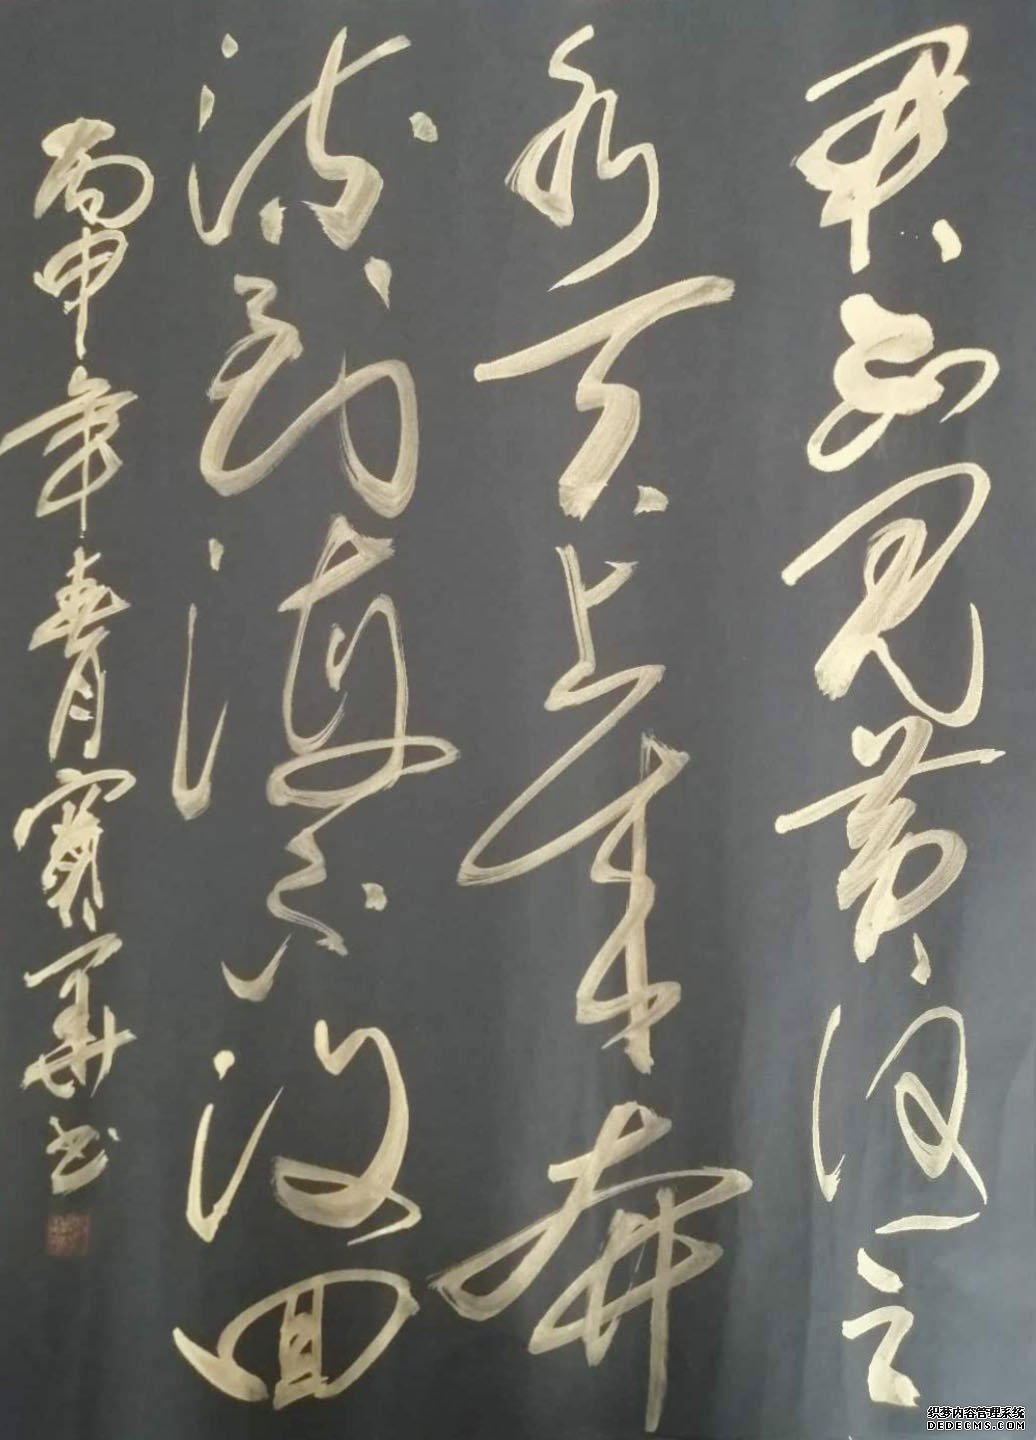 君不見黄河之
水天上来奔
流到海不復回
丙申年春月寶華书
织梦内容管理系统
DEDECMS.COM